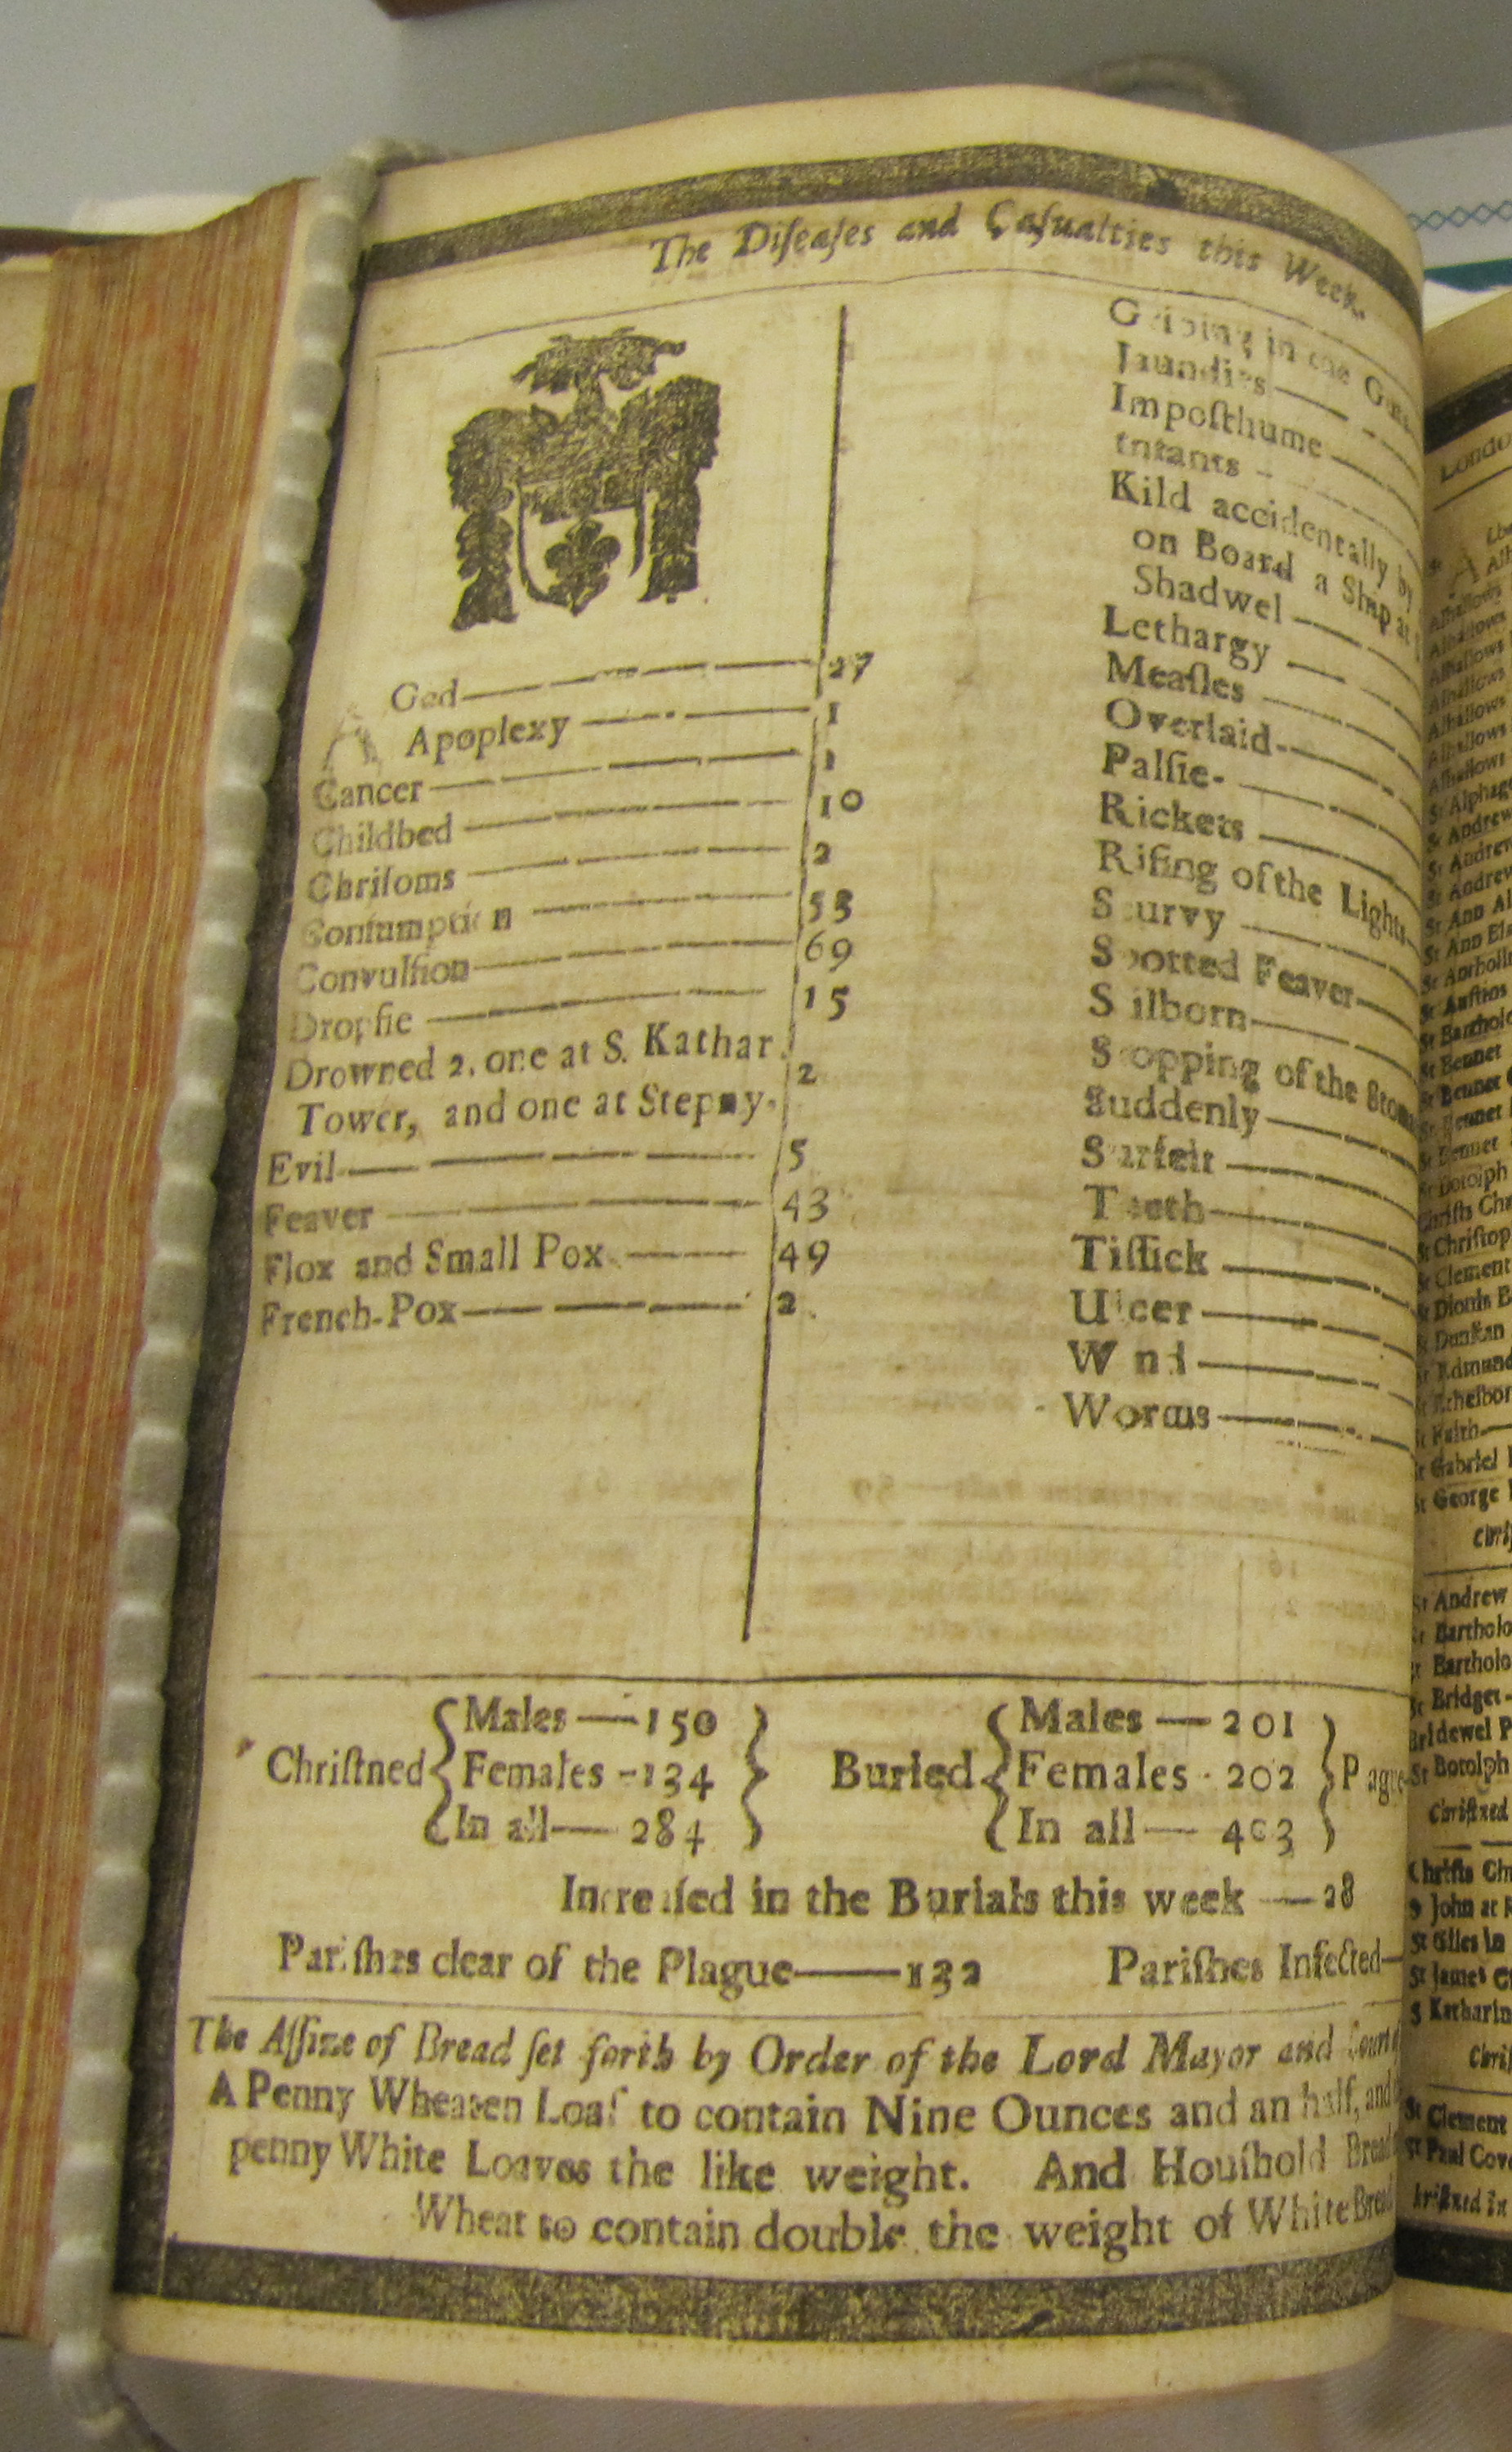 The Diſeaſes and Caſualties this Week.
Aged 27
Apoplexy 1
Cancer 1
Childbed 10
Chriſoms 2
Conſumption 53
Convulſion 69
Dropſie 15
Drowned 2. one at S. Kathar.
Tower, and one at Stepny. 2
Evil 5
Feaver 43
Flox and Small Pox 49
French-Pox 2
Griping in the Guts
Jaundies
Impoſthume
Infants
Kild accidentally by
on Board a Ship at
Shadwel
Lethargy
Meaſles
Overlaid
Palſie
Rickets
Riſing of the Lights
Scurvy
Spotted Feaver
Stilborn
Stopping of the Stom
Suddenly
Surfeit
Teeth
Tiſſick
Ulcer
Wind
Worms
Chriſtned { Males — 150
Females - 134
In all — 284 }
Buried { Males — 201
Females - 202
In all — 403 } Plague
Increaſed in the Burials this week — 28
Pariſhes clear of the Plague — 132 Pariſhes Infected —
The Aſſize of Bread ſet forth by Order of the Lord Mayor and Court
A Penny Wheaten Loaf to contain Nine Ounces and an half, and
penny White Loaves the like weight. And Houſhold Bread
Wheat to contain double the weight of White Bread
London
Alhallows
Alhallows
Alhallows
Alhallows
Alhallows
Alhallows
Alhallows
St Alphage
St Andrew
St Andrew
St Andrew
St Ann Al
St Ann
St Auſtins
St Barthol
St Bennet
St Bennet
St Bennet
St Bennet
St Botolph
Chriſts Chu
St Chriſtop
St Clement
St Dionis B
St Dunſtan
St Edmund
St Ethelbor
St Faith
St Gabriel
St George
St Andrew
St Bartholo
St Bartholo
St Bridget
Bridewel P
St Botolph
Chriſtned
Chriſts Chu
St John at
St Giles in
St James
S Katharin
St Clement
St Paul Cove
Chriſtned in